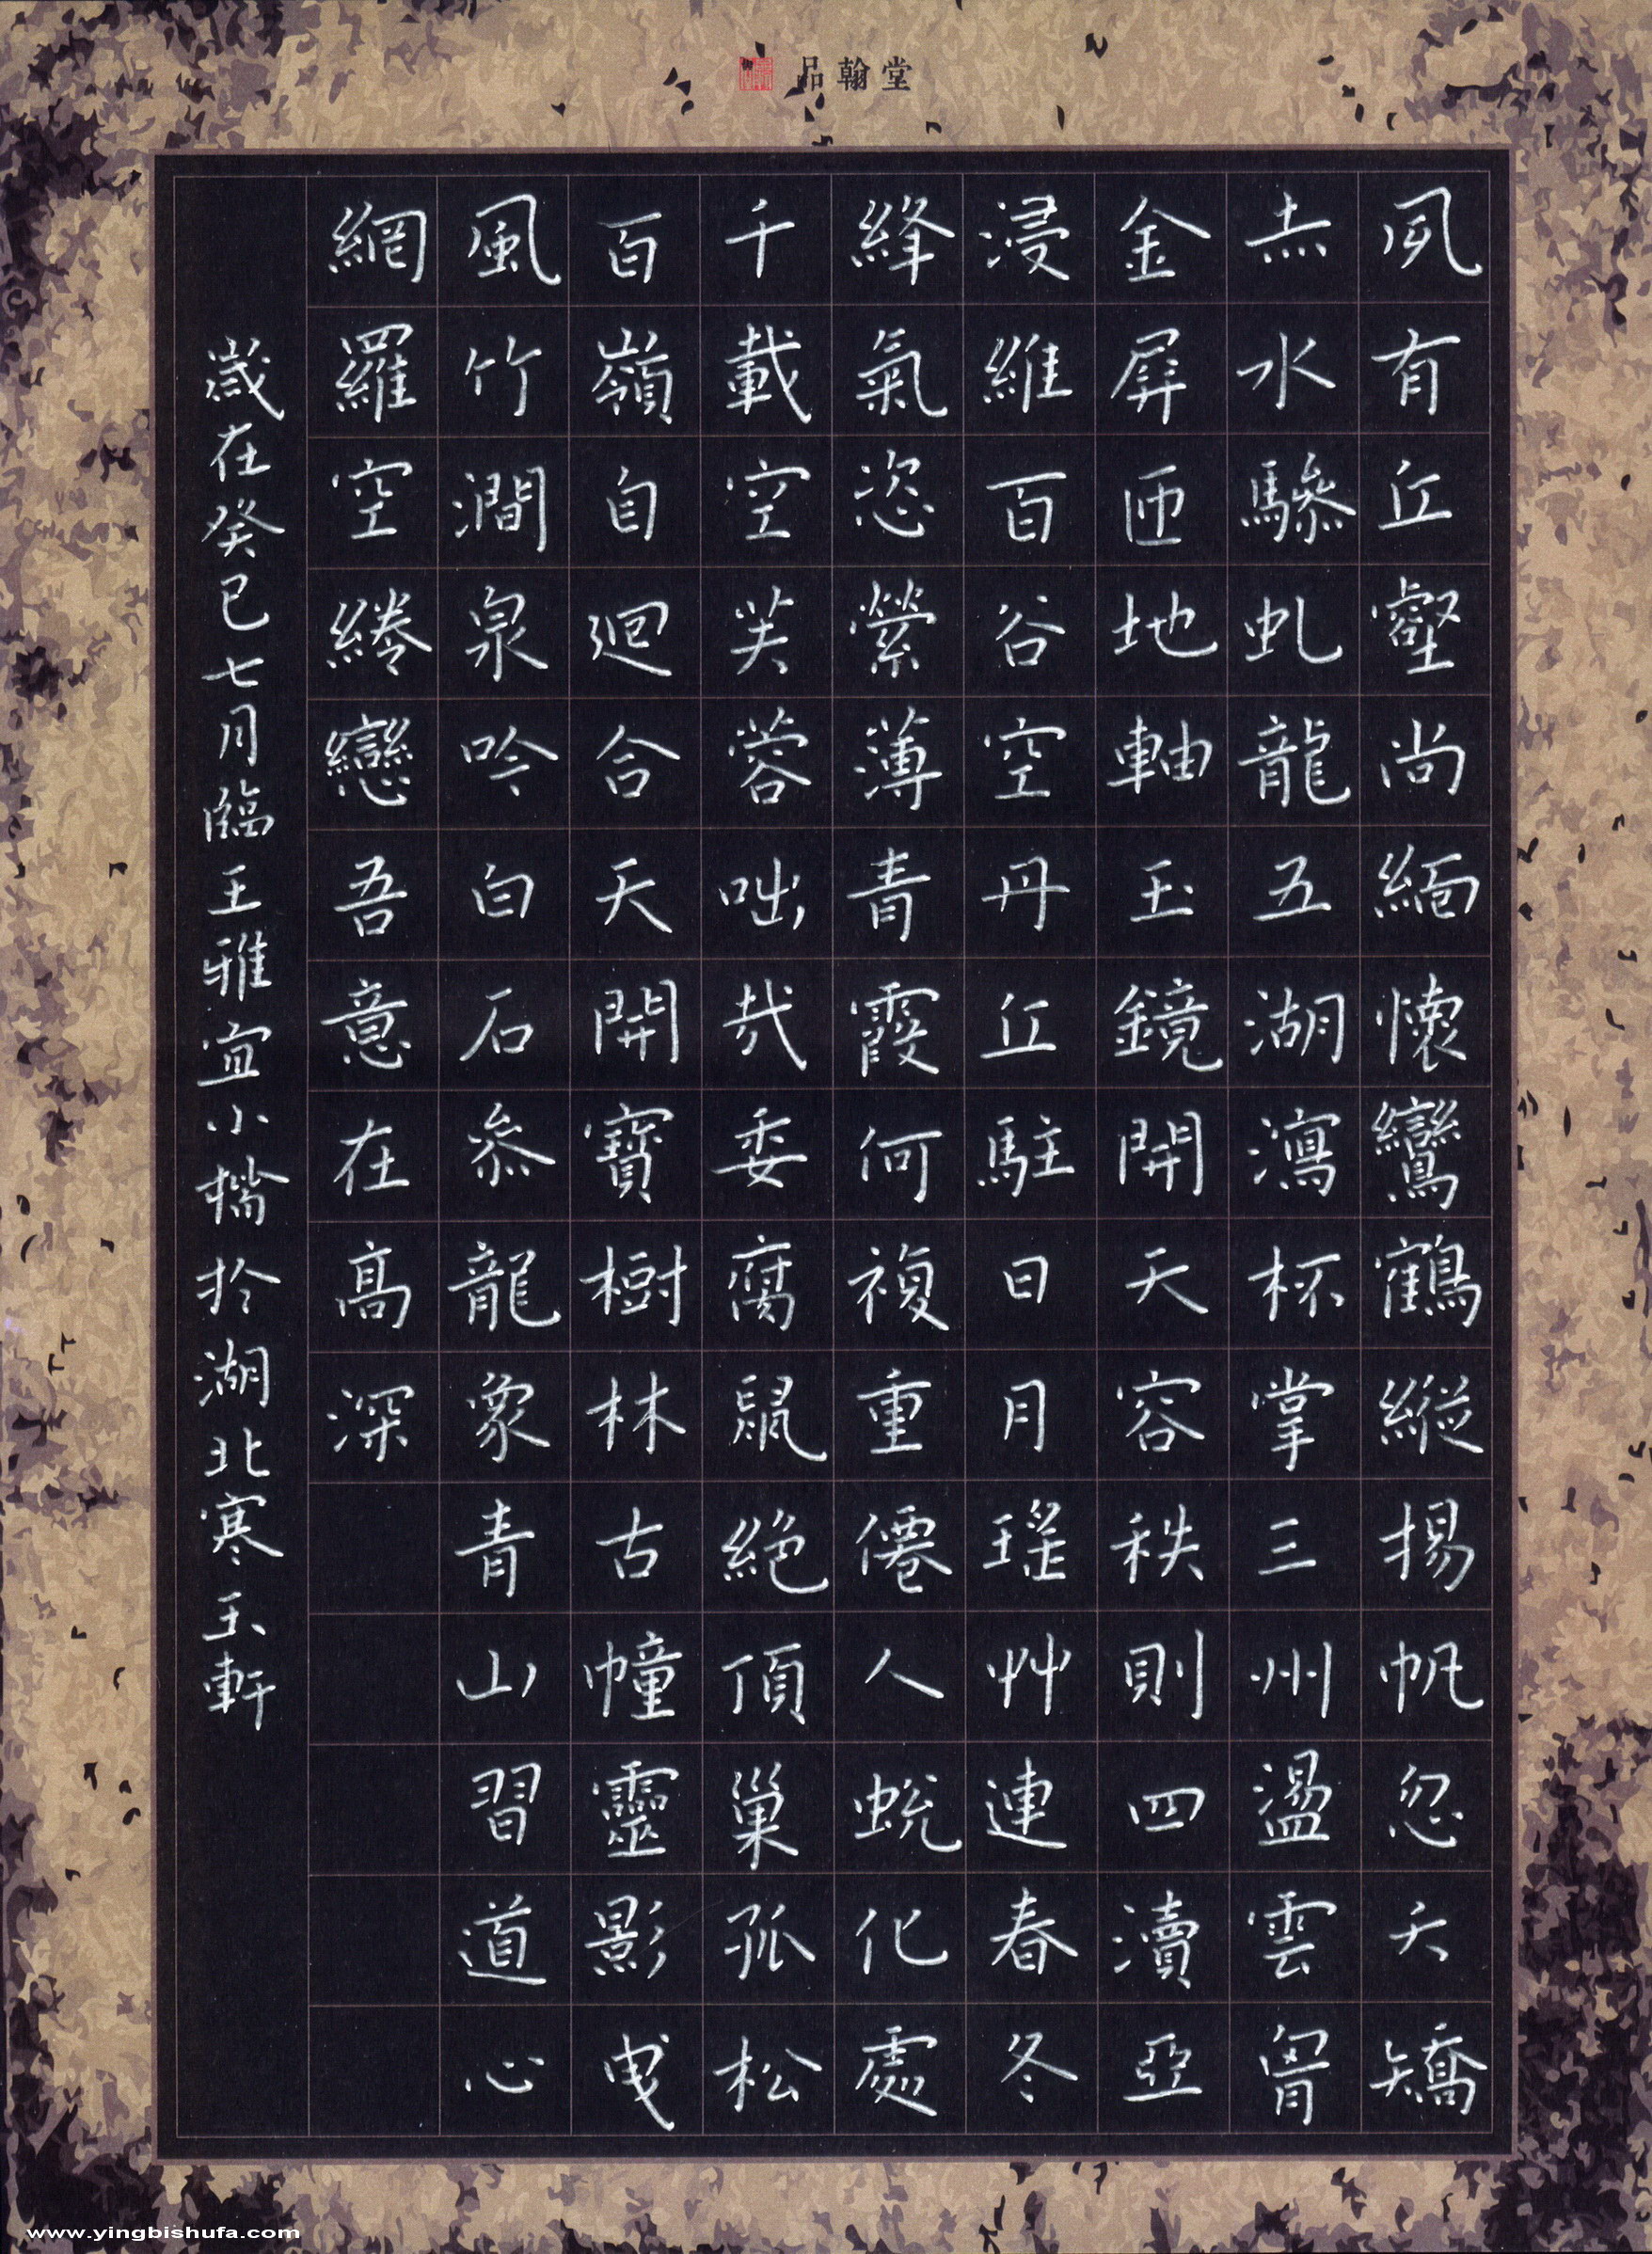 品翰堂
夙有丘壑尚緬懷鸞鶴縱揚帆忽夭矯
赤水驂虬龍五湖瀉杯掌三州盪雲胷
金屏匝地軸玉鏡開天容秩則四瀆亞
浸維百谷空丹丘駐日月瑤艸連春冬
絳氣恣縈薄青霞何複重僊人蛻化處
千載空芙蓉咄哉委腐鼠絕頂巢孤松
百嶺自迴合天開寶樹林古幢靈影曳
風竹澗泉吟白石參龍象青山習道心
網羅空綣戀吾意在高深
歲在癸巳七月臨王雅宜小楷於湖北寒玉軒
www.yingbishufa.com